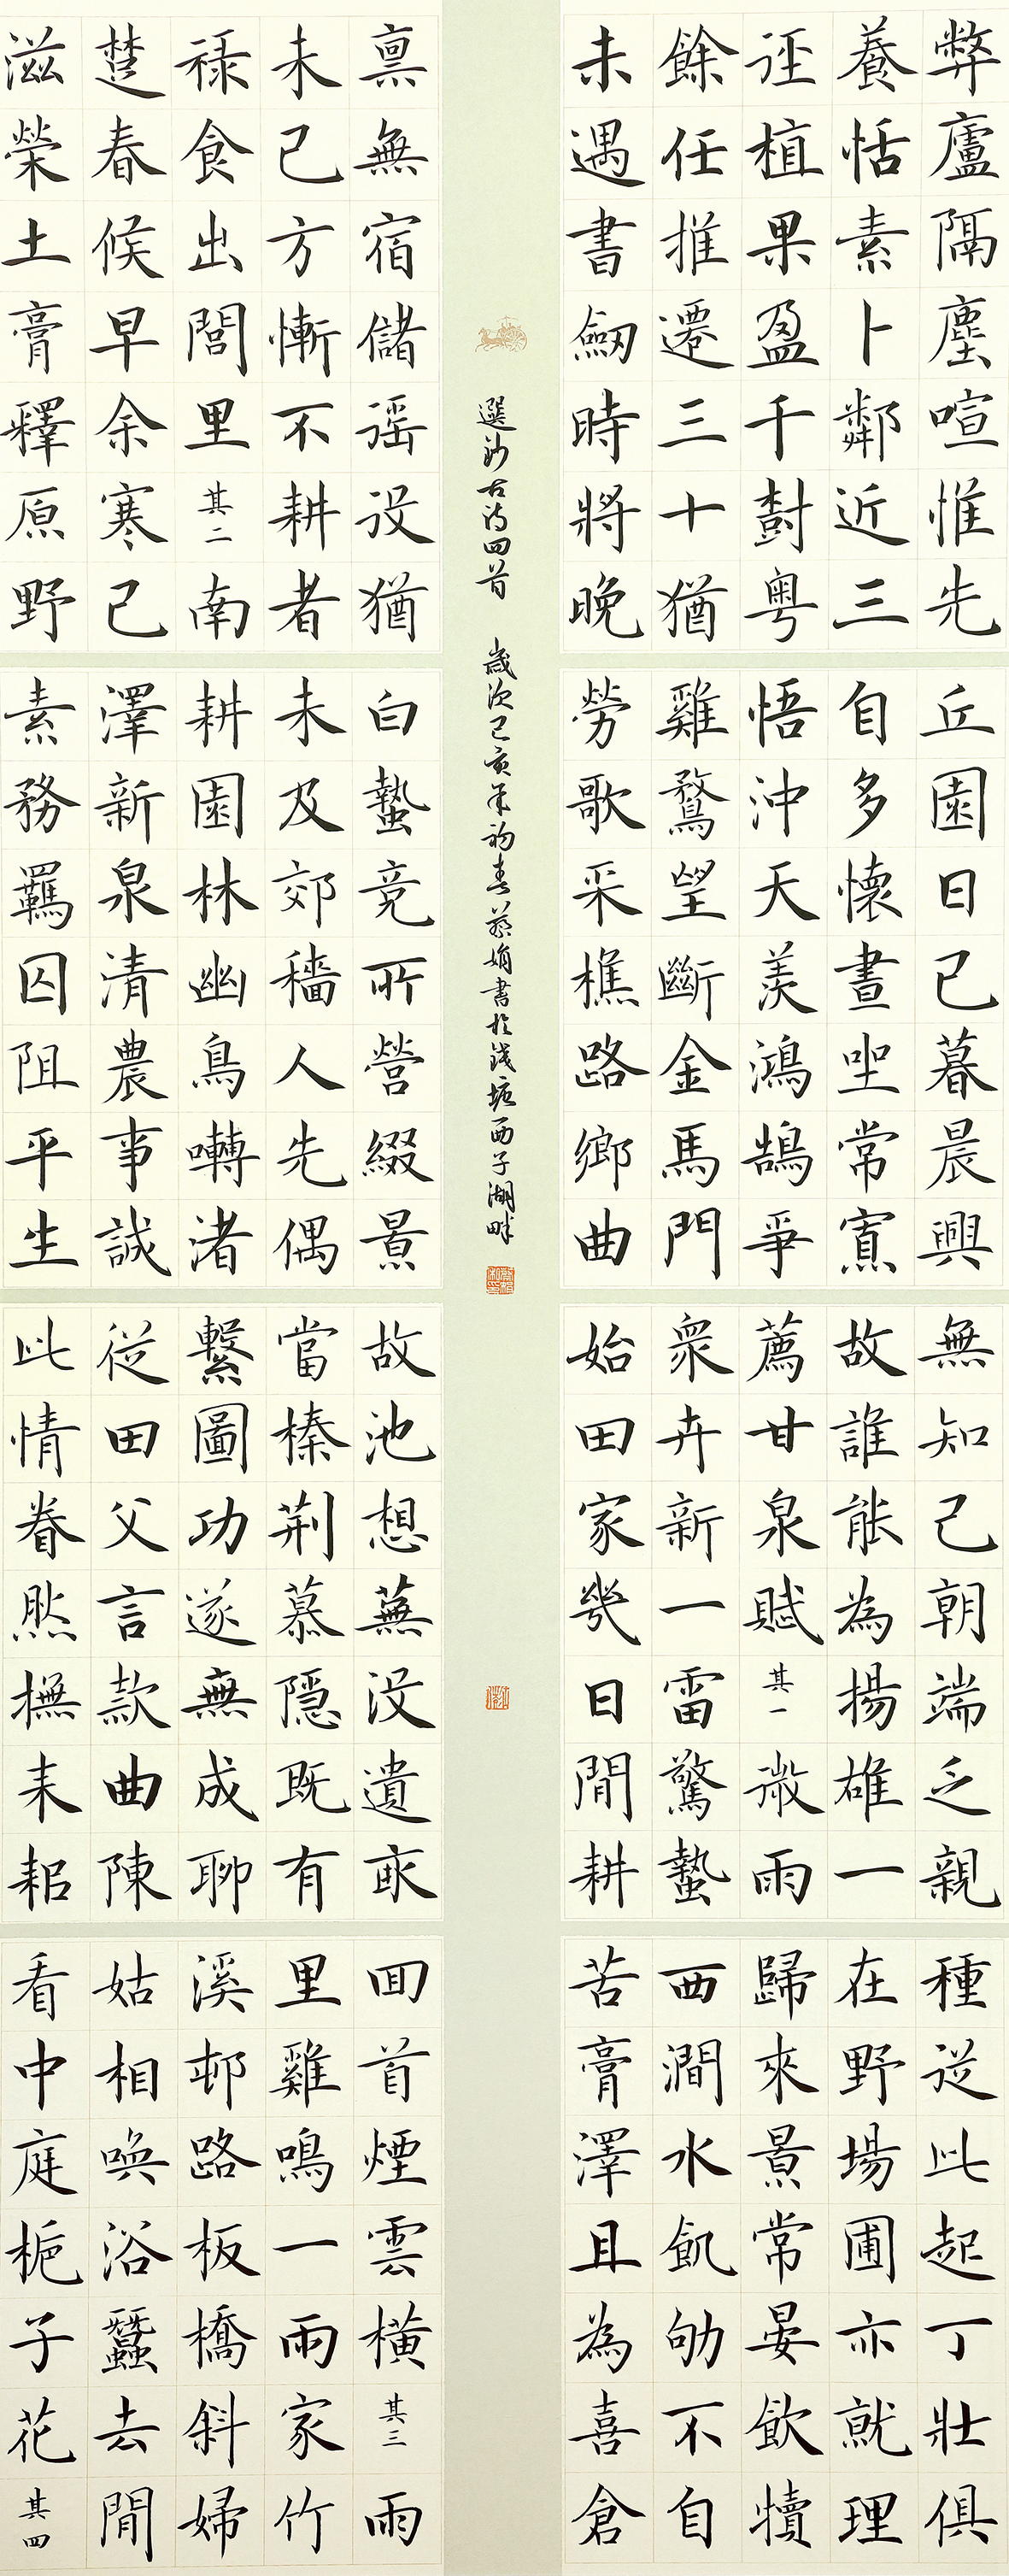 弊廬隔塵喧惟先
養恬素卜鄰近三
逕植果盈千樹粵
餘任推遷三十猶
未遇書劒時將晚
丘園日已暮晨興
自多懷晝坐常寡
悟沖天羨鴻鵠爭
雞鶩望斷金馬門
勞歌采樵路鄉曲
無知己朝端乏親
故誰能為揚雄一
薦甘泉賦 其一 微雨
眾卉新一雷驚蟄
始田家幾日閒耕
種從此起丁壯俱
在野場圃亦就理
歸來景常晏飲犢
西澗水飢劬不自
苦膏澤且為喜倉
稟無宿儲徭役猶
未已方慚不耕者
祿食出閭里 其二 南
楚春候早余寒已
滋榮土膏釋原野
白蟄竞所營綴景
未及郊穡人先偶
耕園林幽鳥囀渚
澤新泉清農事誠
素務羈囚阻平生
故池想蕪沒遺畝
當榛荊慕隱既有
繫圖功遂無成聊
從田父言款曲陳
此情眷然撫耒耜
回首煙雲橫 其三 雨
里雞鳴一兩家竹
溪邨路板橋斜婦
姑相喚浴蠶去閒
看中庭梔子花 其四
選鈔古詩四首 歲次己亥年初春蔡娟書於錢塘西子湖畔